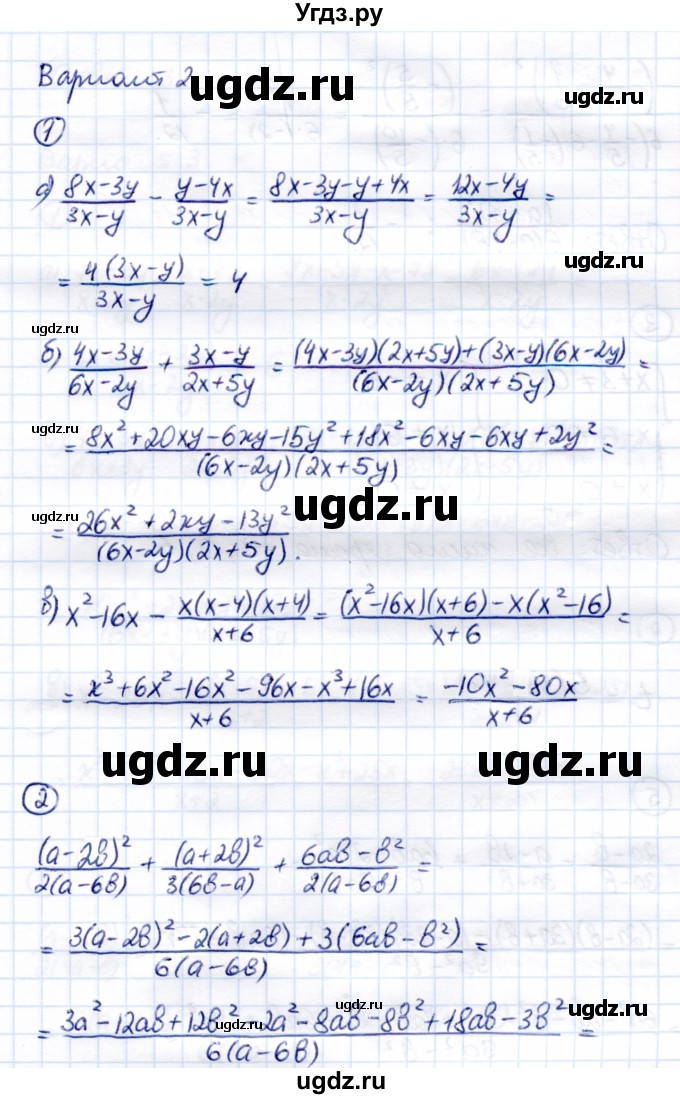 Угдз.ру
Вариант 2
ugdz.ru
ugdz.ru
①
ugdz.ru
а) (8x-3y)/(3x-y) - (y-4x)/(3x-y) = (8x-3y-y+4x)/(3x-y) = (12x-4y)/(3x-y) =
ugdz.ru
= 4(3x-y)/(3x-y) = 4
ugdz.ru
б) (4x-3y)/(6x-2y) + (3x-y)/(2x+5y) = ((4x-3y)(2x+5y)+(3x-y)(6x-2y))/((6x-2y)(2x+5y)) =
ugdz.ru
= (8x²+20xy-6xy-15y²+18x²-6xy-6xy+2y²)/((6x-2y)(2x+5y)) =
ugdz.ru
ugdz.ru
= (26x²+2xy-13y²)/((6x-2y)(2x+5y)).
в) x²-16x - x(x-4)(x+4)/(x+6) = ((x²-16x)(x+6)-x(x²-16))/(x+6) =
= (x³+6x²-16x²-96x-x³+16x)/(x+6) = (-10x²-80x)/(x+6)
ugdz.ru
ugdz.ru
②
(a-2b)²/(2(a-6b)) + (a+2b)²/(3(6b-a)) + (6ab-b²)/(2(a-6b)) =
= (3(a-2b)²-2(a+2b)+3(6ab-b²))/(6(a-6b)) =
ugdz.ru
ugdz.ru
= (3a²-12ab+12b²-2a²-8ab-8b²+18ab-3b²)/(6(a-6b)) =
ugdz.ru